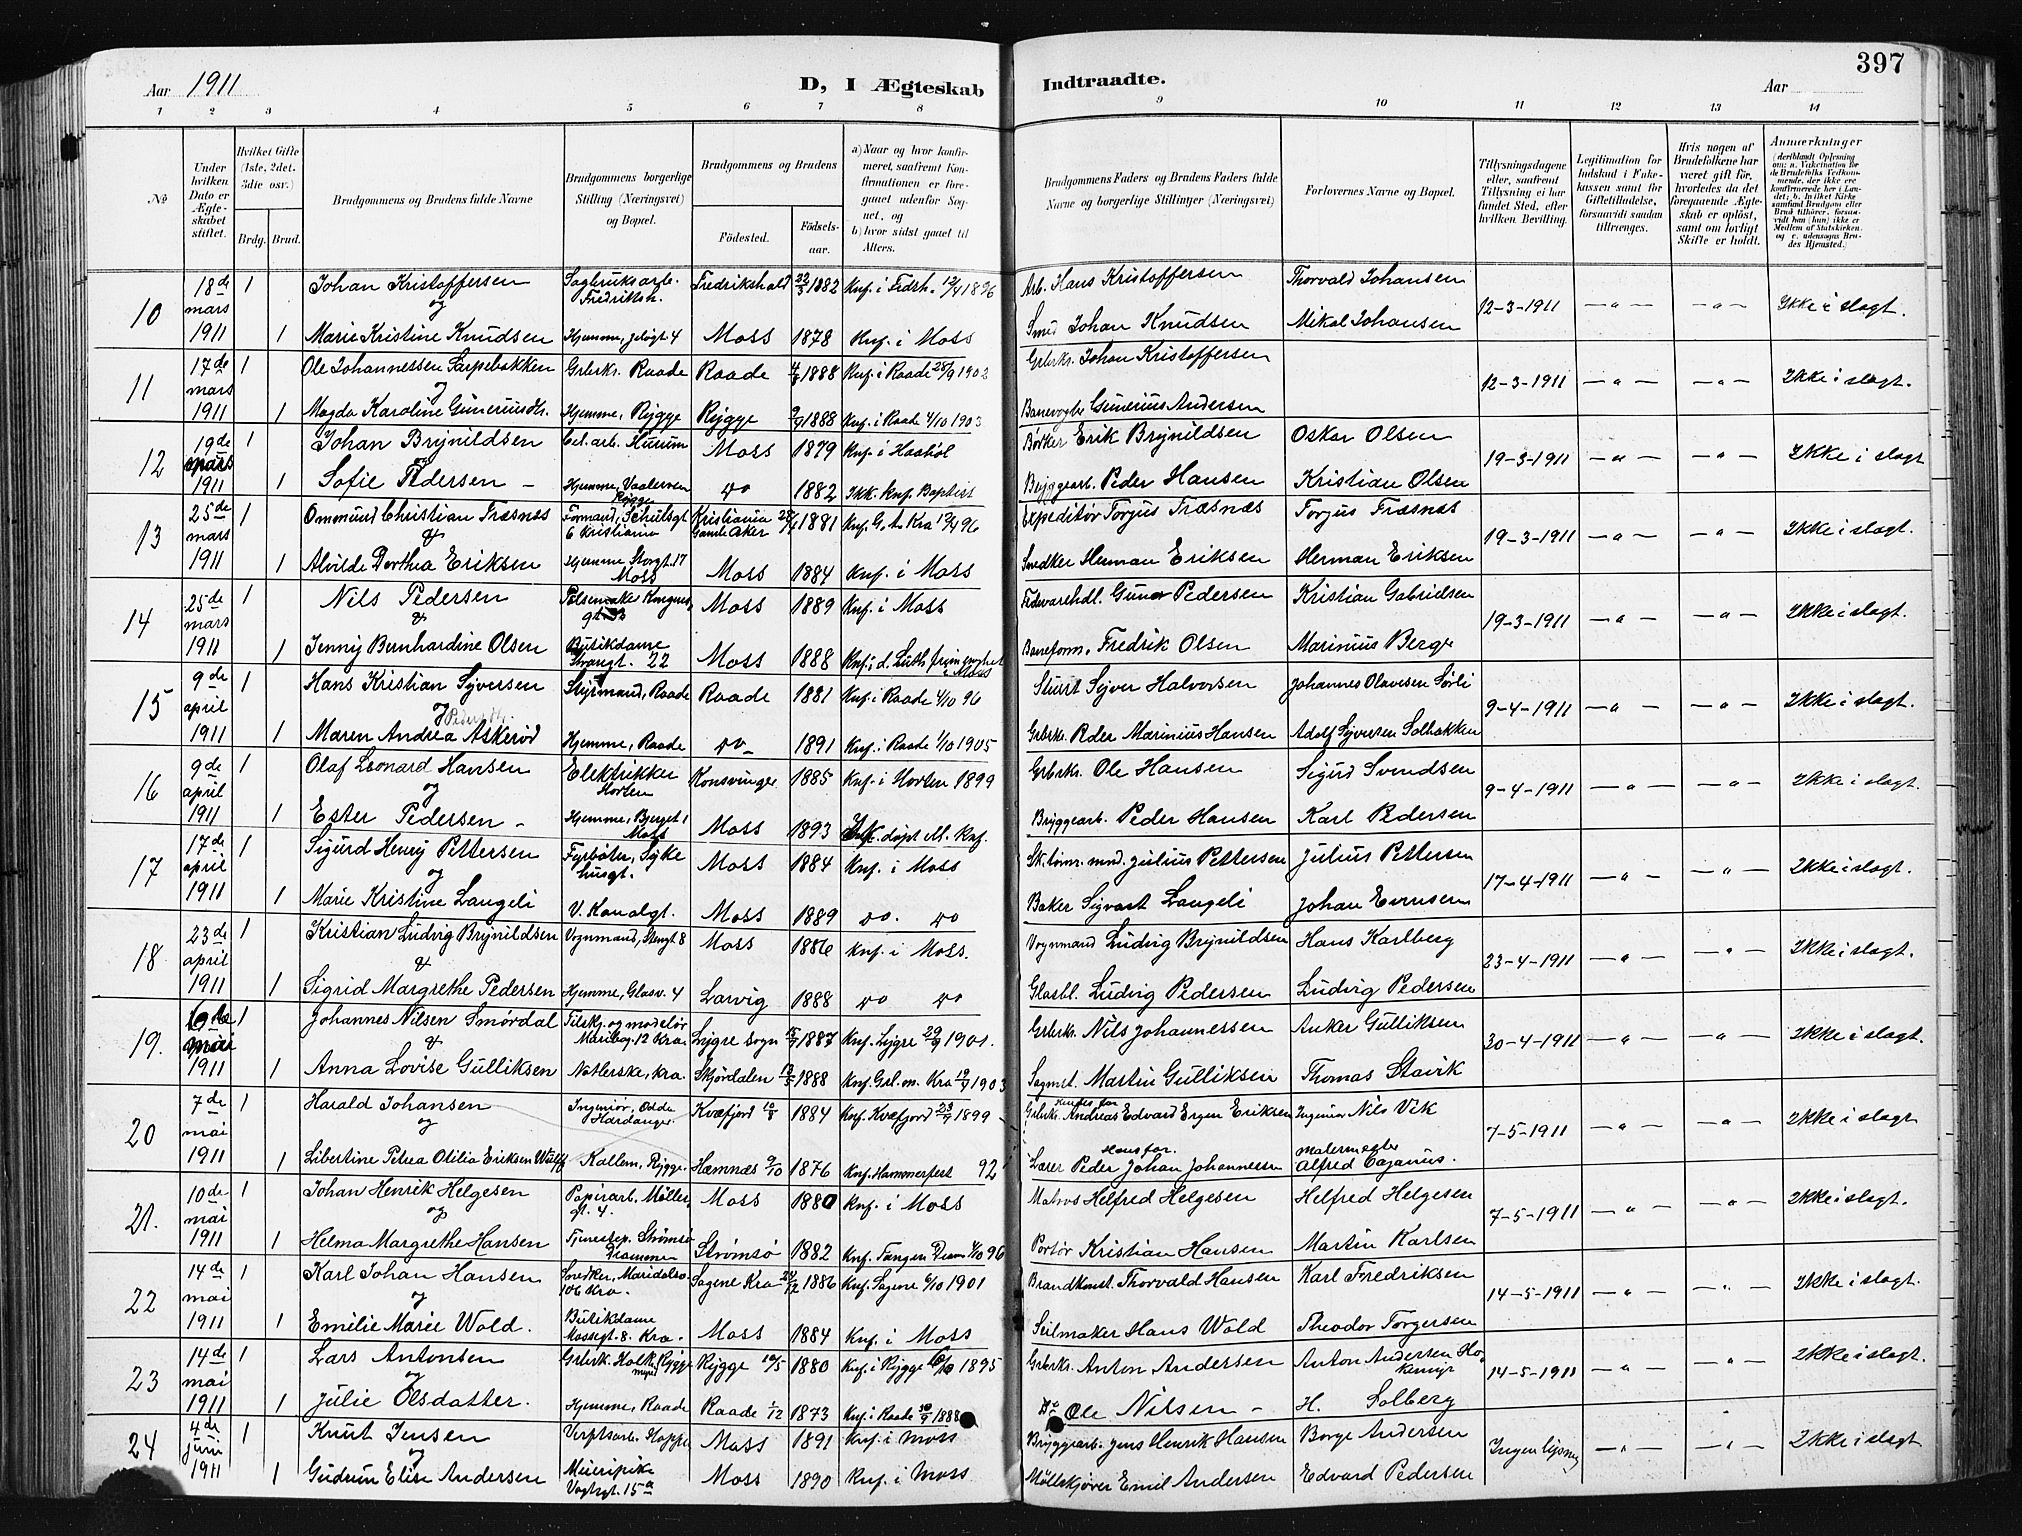 397
Aar 1911
D, I Ægteskab
Indtraadte.
Aar
1 2 3 4 5 6 7 8 9 10 11 12 13 14
No
Under hvilken Dato er Ægteskabet stiftet.
Hvilket Gifte (1ste, 2det, 3die osv.)
Brdg. Brud.
Brudgommens og Brudens fulde Navne
Brudgommens borgerlige Stilling (Næringsvei) og Bopæl.
Brudgommens og Brudens
Fødested.
Fødselsaar.
a) Naar og hvor konfirmeret, saafremt Konfirmationen er foregaaet udenfor Sognet, og
b) hvor sidst gaaet til Alters.
Brudgommens Faders og Brudens Faders fulde Navne og borgerlige Stillinger (Næringsvei)
Forlovernes Navne og Bopæl.
Tillysningsdagene eller, saafremt Tillysning ei har fundet Sted, efter hvilken Bevilling.
Legitimation for Indskud i Enkekassen samt for Giftetilladelse, forsaavidt saadan tiltrænges.
Hvis nogen af Brudefolkene har været gift før, hvorledes da det foregaaende Ægteskab er opløst, samt om lovligt Skifte er holdt.
Anmerkninger
10 18de mars 1911 1 Johan Kristoffersen Sagbruksarb. Fredriksh. Fredrikshald 22/3 1882 Knf. i Fredsh. 12/4 1896 Arb. Hans Kristoffersen Thorvald Johansen 12-3-1911 Ikke i slagt.
og
1 Marie Kristine Knudsen Hjemme, 4 Moss 1878 Knf. i Moss Smed Johan Knudsen Mikal Johansen
11 17de mars 1911 1 Ole Johannessen Sarpebakken Grbrkr. Raade Raade 1888 Knf. i Raade 25/9 1902 Grbrkr. Johan Kristoffersen 12-3-1911 Ikke i slagt.
og
1 Magda Karoline Guneriusdtr. Hjemme, Rygge Rygge 1888 Knf. i Raade 4/10 1903 Banevogter Gunerius Andersen
12 19de mars 1911 1 Johan Brynildsen Cel. arb. Hurum Moss 1879 Knf. i Haabøl Bødker Erik Brynildsen Oskar Olsen 19-3-1911 Ikke i slagt
og
1 Sofie Pedersen Hjemme, Vaalerveien Rygge do 1882 Ikk. knf. Baptist Bryggearb. Peder Hansen Kristian Olsen
13 25de mars 1911 1 Ommund Christian Træsnæs Formand, Schulsgt 6 Kristiania Kristiania Gamle Aker 1881 Knf. G. A. Kra 12/4 96 Expeditør Torgus Træsnæs Torgus Træsnæs 19-3-1911 Ikke i slagt.
&
1 Alvilde Dorthea Eriksen Hjemme, Storgt. 17 Moss Moss 1884 Knf. i Moss Snedker Herman Eriksen Herman Eriksen
14 25de mars 1911 1 Nils Pedersen Pølsemaker Kongensgt. Moss 1889 Knf. i Moss Fedevarehdl. Gunar Pedersen Kristian Gabrielsen 19-3-1911 Ikke i slagt.
&
1 Jenny Bernhardine Olsen Butikdame Storgt. 22 Moss 1888 Knf. i d. Luth. frimenghet i Moss Baneform. Fredrik Olsen Marinius Berge
15 9de april 1911 1 Hans Kristian Syversen Styrmand, Raade Raade 1881 Knf. i Raade 4/10 96 Stuert Syver Halvorsen Johannes Olavesen Sørli 9-4-1911 Ikke i slagt.
og Pedersdtr.
1 Maren Andrea Askerød Hjemme, Raade do 1891 Knf. i Raade 1/10 1905 Grbrkr. Peder Marinius Hansen Adolf Syversen Solbakken
16 9de april 1911 1 Olaf Leonard Hansen Elektrikker Horten Konsvinger 1885 Knf. i Horten 1899 Grbrkr. Ole Hansen Sigurd Svendsen 9-4-1911 Ikke i slagt.
og
1 Ester Pedersen Hjemme, Berget 1 Moss Moss 1893 Ikk. døpt ell. knf. Bryggearb. Peder Hansen Karl Pedersen
17 17de april 1911 1 Sigurd Henry Pettersen Fyrbøter, Sykehusgt. Moss 1884 Knf. i Moss Sk. tømr. mnd. Julius Pettersen Julius Pettersen 17-4-1911 Ikke i slagt.
og
1 Marie Kristine Langeli V. Kanalgt. Moss 1889 do. do Baker Sigvart Langeli Johan Evensen
18 23de april 1911 1 Kristian Ludvig Brynildsen Vognmand, Stengt. 8 Moss 1886 Knf. i Moss. Vognmand Ludvig Brynildsen Hans Karlberg 23-4-1911 Ikke i slagt.
&
1 Sigrid Margrethe Pedersen Hjemme, Glasv. 4 Larvig 1888 do do Glasbl. Ludvig Pedersen Ludvig Pedersen
19. 6de mai 1911 1 Johannes Nilsen Smørdal Tilskj. og modelør Maribog. 12 Kra. Lygre sogn 1887 Knf. Lygre 29/9 1901. Grbrkr. Nils Johannessen Anker Gulliksen 30-4-1911 Ikke i slagt.
&
1 Anna Lovise Gulliksen Natlerske, Kra. Skjørdalen 1888 Knf. Grl. m. Kra 1903 Sagmst. Martin Gulliksen Thomas Stavik
20 7de mai 1911 1 Harald Johansen Ingeniør, Odda Hardanger. Kvæfjord 10/8 1884 Knf. Kvæfjord 23/7 1899 Grbrkr. Hendes far Andreas Edvard Ergen Eriksen Ingeniør Nils Vik 7-5-1911 Ikke i slagt
og
1 Libertine Petrea Otilia Eriksen Wulff Kallem, Rygge. Hæmnæs 9/10 1876 Knf. Hammerfest 92 Lærer Hans far. Peder Johan Johannesen malermester Alfred Cajanus.
21. 10de mai 1911 1 Johan Henrik Helgesen Papirarb. Møllergt. 4. Moss 1880 Knf. i Moss Matros Helfred Helgesen Helfred Helgesen 7-5-1911 Ikke i slagt.
og
1 Helma Margrethe Hansen Tjenestep. Strømsø Drammen Strømsø 1882 Knf. Tangen Dram 4/10 96 Portør Kristian Hansen Martin Karlsen
22 14de mai 1911 1 Karl Johan Hansen Snedker, Maridalsv. 106 Kra. Sagene Kra 1886 Knf. Sagene 6/10 1901 Brandkonst. Thorvald Hansen Karl Fredriksen 14-5-1911 Ikke i slagt.
og
1 Emilie Marie Wold. Butikdame Mossegt. 8. Kra. Moss 1884 Knf. i Moss Seilmaker Hans Wold Theodor Torgersen
23 14de mai 1911 1 Lars Antonsen Grbrk. Rygge Rygge 10/5 1880 Knf. i Rygge 1895 Grbrkr. Anton Andersen Anton Andersen 14-5-1911 Ikke i slagt.
og
1 Julie Olsdatter. Hjemme, Raade Raade 1/12 1873 Knf. i Raade 1888 Do Ole Nilsen H. Solberg
24 4de juni 1911 1 Knut Jensen Verftsarb. Moss 1891 Knf. i Moss Bryggearb. Jens Henrik Hansen Borge Andersen Ingen lysning Ikke i slagt.
og
1 Gudrun Elise Andersen Meieripike Vogtsgt. 15a Moss 1890 Knf. i Moss Møllekjører Emil Andersen Edvard Pedersen